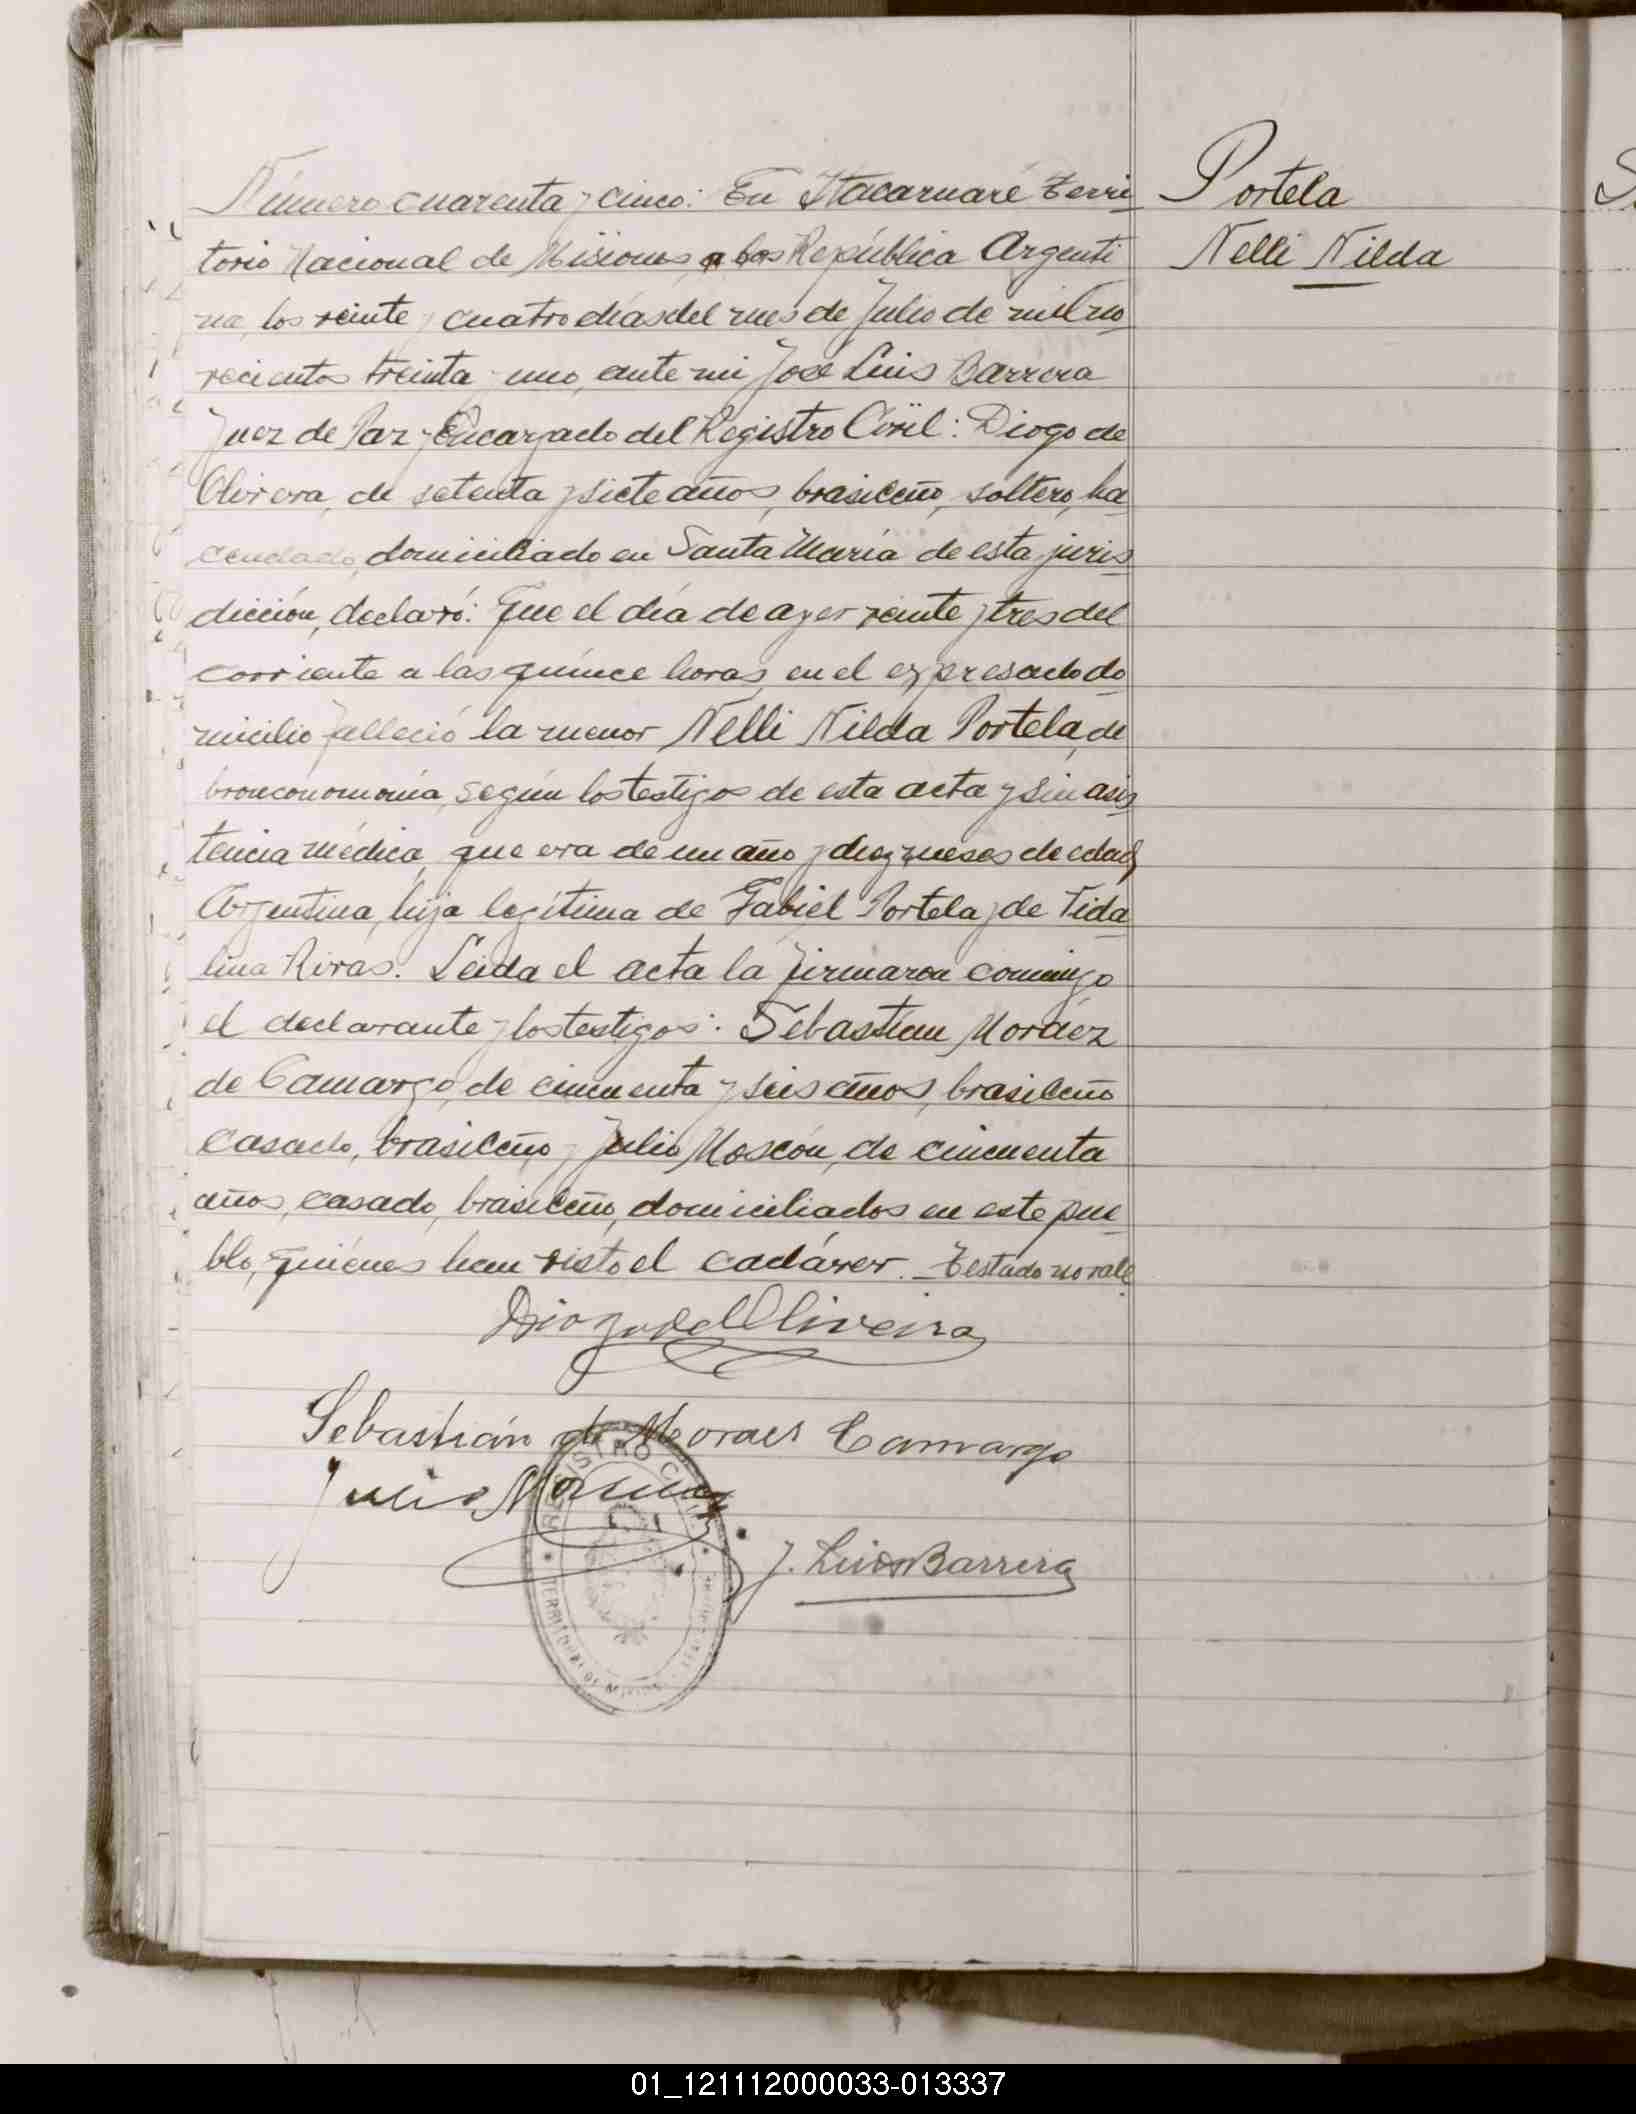 Número cuarenta y cinco: En Itacaruaré Terri
torio Nacional de Misiones, a los República Argenti
na, los veinte y cuatro días del mes de Julio de mil no
vecientos treinta y uno, ante mi José Luis Barrera
Juez de Paz y Encargado del Registro Civil: Diogo de
Olivera, de setenta y siete años, brasileño, soltero, ha
cendado, domiciliado en Santa María de esta juris
dicción, declaró: Que el día de ayer veinte y tres del
corriente a las quince horas, en el expresado do
micilio falleció la menor Nelli Nilda Portela, de
bronconomonía, según los testigos de esta acta y sin asis
tencia médica, que era de un año y diez meses de edad,
Argentina, hija legítima de Fabiel Portela y de Tida
lina Rivas. Leida el acta la firmaron conmigo
el declarante y los testigos: Sebastian Moráez
de Camargo, de cincuenta y seis años, brasileño
casado, brasileño y Julio Moscón, de cincuenta
años, casado, brasileño, domiciliados en este pue
blo, quiénes han visto el cadáver. Testado no vale
Portela
Nelli Nilda
Diogo de Oliveira
Sebastián de Moraes Camargo
Julio
J. Luis Barrera
REGISTRO CIVIL
TERRITORIO DE MISIONES
01_121112000033-013337